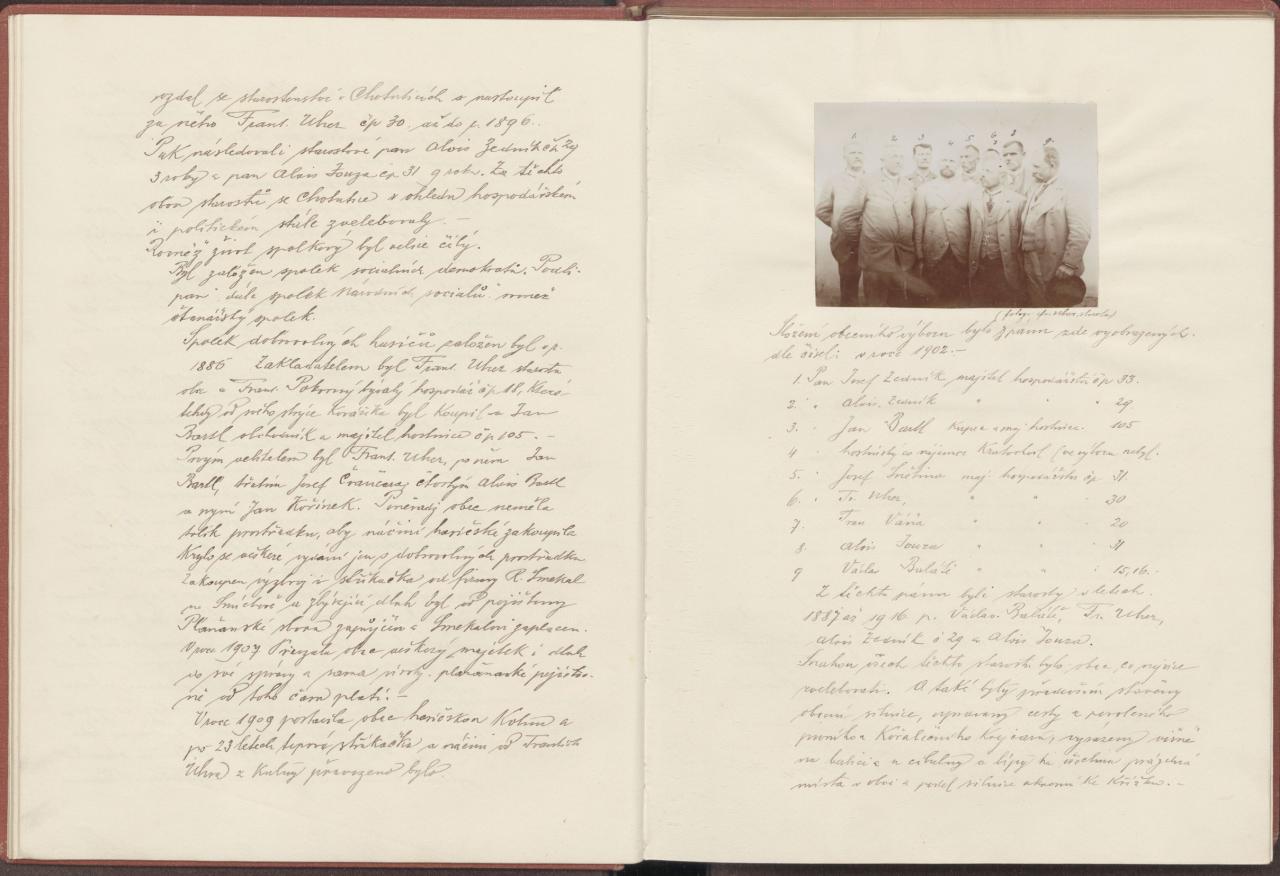 vzdal se starostenství v Chotuticích a nastoupil
za něho Frant. Uher čp 30. až do r. 1896.
Pak následovali starostové pan Alois Zedník čp. 29
3 roky a pan Alois Souza čp 31 9 roků. Za těchto
obou starostů se Chotutice v ohledu hospodářském
i politickém stále zvelebovaly. —
Rovněž život spolkový byl velice čilý.
Byl založen spolek socialních demokratů,
dále spolek Národních socialů rovněž
čtenářský spolek.
Spolek dobrovolných hasičů založen byl r.
1886 Zakladatelem byl Frant. Uher starosta
obce a Frant. Pokorný bývalý hospodář čp 18, které
tehdy od svého strýce Kováčíka byl koupil a Jan
Bartl obchodník a majitel hostince čp 105. —
Prvým velitelem byl Frant. Uher, po něm Jan
Bartl, třetím Josef čtvrtým Alois Bartl
a nyní Jan Kořínek. Poněvadž obec neměla
tolik prostředků, aby náčiní hasičské zakoupila
krylo se veškeré vydání jen s dobrovolných prostředků
Zakoupen výzbroj i stříkačka od firmy R. Smekal
na Smíchově a zbývající dluh byl od pojišťovny
Plaňanské sboru zapůjčen a Smekalovi zaplacen.
V roce 1907 Převzala obec veškerý majetek i dluh
do své správy a sama úroky plaňanské pojišťo-
ně od toho času platí. —
V roce 1909 postavila obec hasičskou Kolnu a
po 23 letech teprve stříkačka a náčiní od Františ.
Uhra z Kulny převezeno bylo.
1 2 3 4 5 6 7 8 9
(fotogr. fr. Uher, starosta)
Složení obecního výboru bylo z pánů zde vyobrazených
dle čísel: v roce 1902. —
1. Pan Josef Zedník, majitel hospodářství čp 33.
2. " Alois. Zedník " " " 29
3. " Jan Bartl Kupec a maj hostince. 105
4 " hostinský co nájemce Kratochvíl (ve výboru nebyl.
5. " Josef maj hospodářství čp 31.
6. " Fr. Uher, " " " 30
7. " Fran Váňa " " " 20
8. " Alois Souza " " " 31
9 " Václav Bulíř " " " 15,16. -
Z těchto pánů byli starosty v letech.
1887 až 1916 p. Václav Bulíř, Fr. Uher,
Alois Zedník č 29 a Alois Souza.
Snahou všech těchto starostů bylo obec co nejvíce
zvelebovati. A také byly především stavěny
obecní silnice, vyrovnány cesty a povoleného
prvního a Kořalečního Krejcaru, vysazeny višně
na balici a u cihelny a lípy na všechna prázdná
místa v obci a podel silnice okresní ke Křížku. —